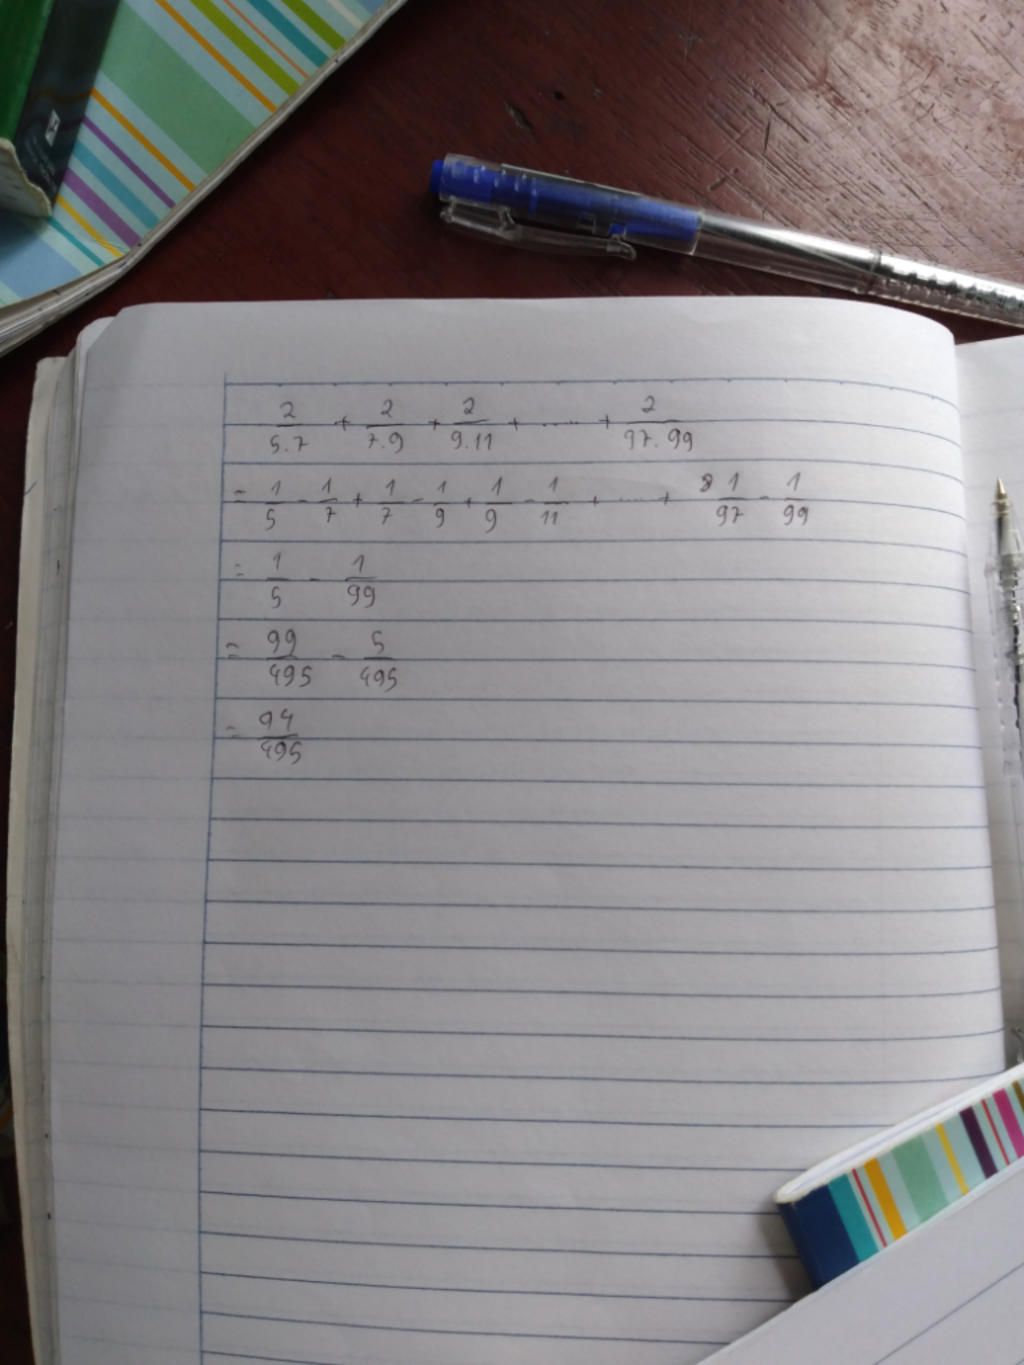 2/5.7 + 2/7.9 + 2/9.11 + ..... + 2/97.99
= 1/5 - 1/7 + 1/7 - 1/9 + 1/9 - 1/11 + ..... + 1/97 - 1/99
= 1/5 - 1/99
= 99/495 - 5/495
= 94/495